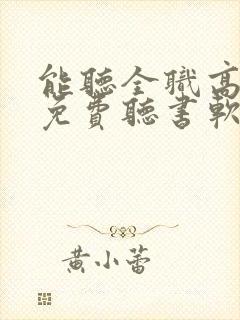 能聽全職高
免費聽書軟
黃小蕾